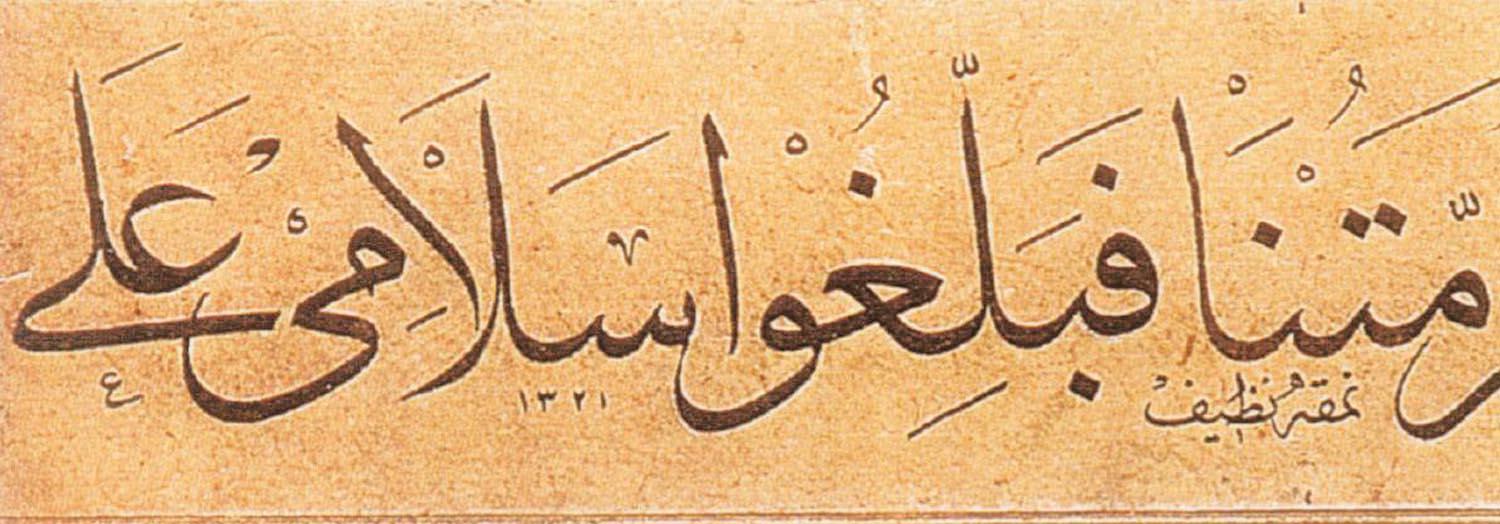 رَّمْتُنَا فَبَلِّغُوْا سَلَامِيْ عَلَى
نمقه نظيف ١٣٢١